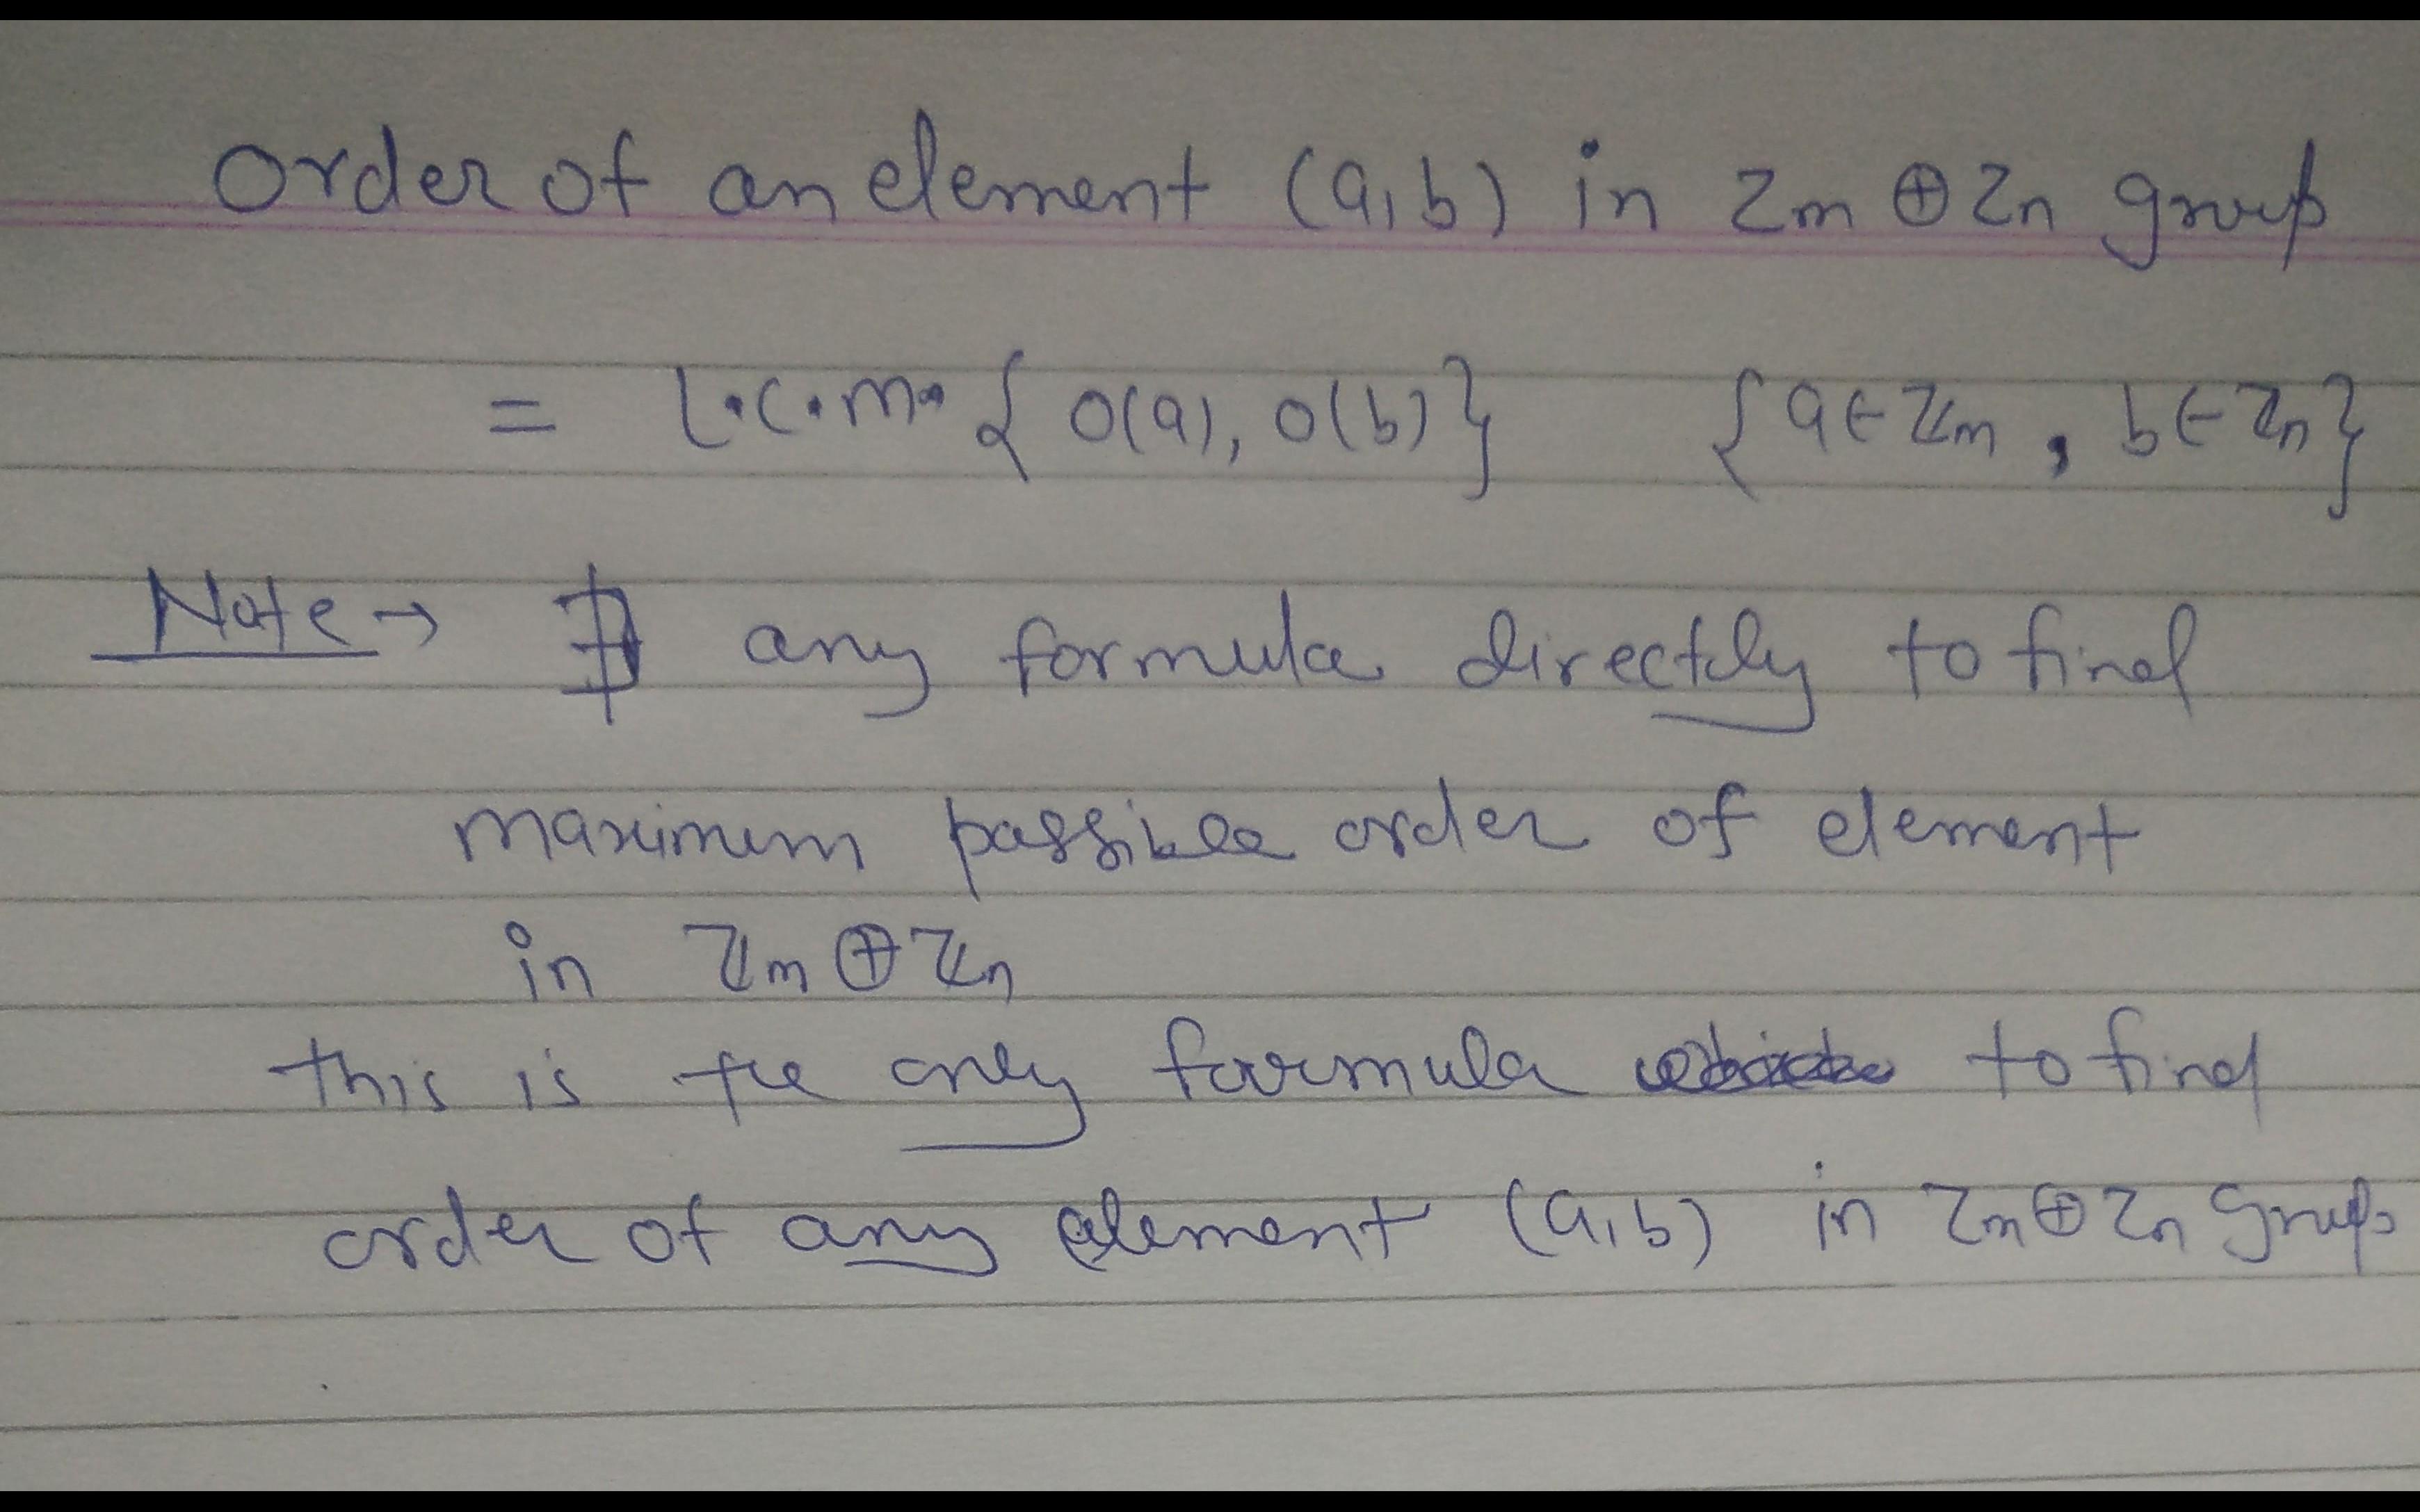 Order of an element (a,b) in Zm ⊕ Zn group
= L.C.M. { O(a), O(b) } { a ∈ ℤm , b ∈ ℤn }
Note → ∄ any formula directly to find
maximum possible order of element
in ℤm ⊕ ℤn
this is the only formula to find
order of any element (a,b) in Zm ⊕ Zn group